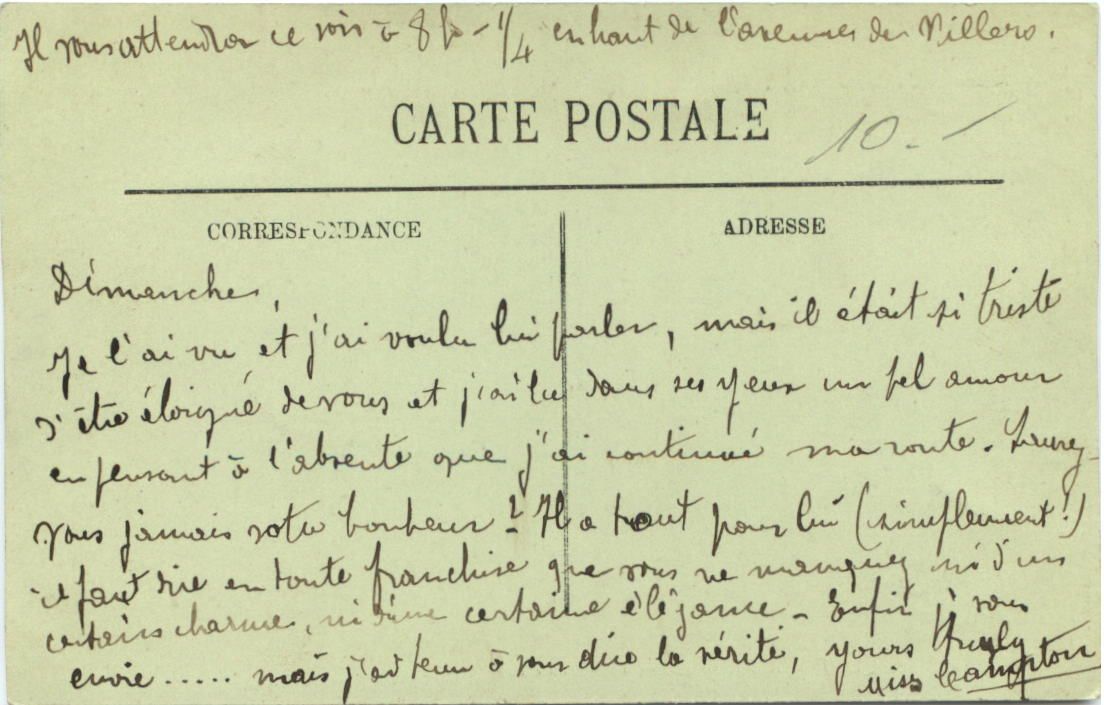 Il vous attendra ce soir à 8 h - 1/4 en haut de l'avenue de Villers.
CARTE POSTALE
10.-
CORRESPONDANCE
ADRESSE
Dimanche,
Je l'ai vu et j'ai voulu lui parler, mais il était si triste
d'être éloigné de vous et j'ai lu dans ses yeux un tel amour
en pensant à l'absente que j'ai continué ma route. Saurez-
vous jamais votre bonheur ? Il a tout pour lui (simplement !)
il faut dire en toute franchise que vous ne manquez ni d'un
certain charme, ni d'une certaine élégance - Enfin je vous
envie ..... mais j'ai tenu à vous dire la vérité, yours truly
Miss Campton